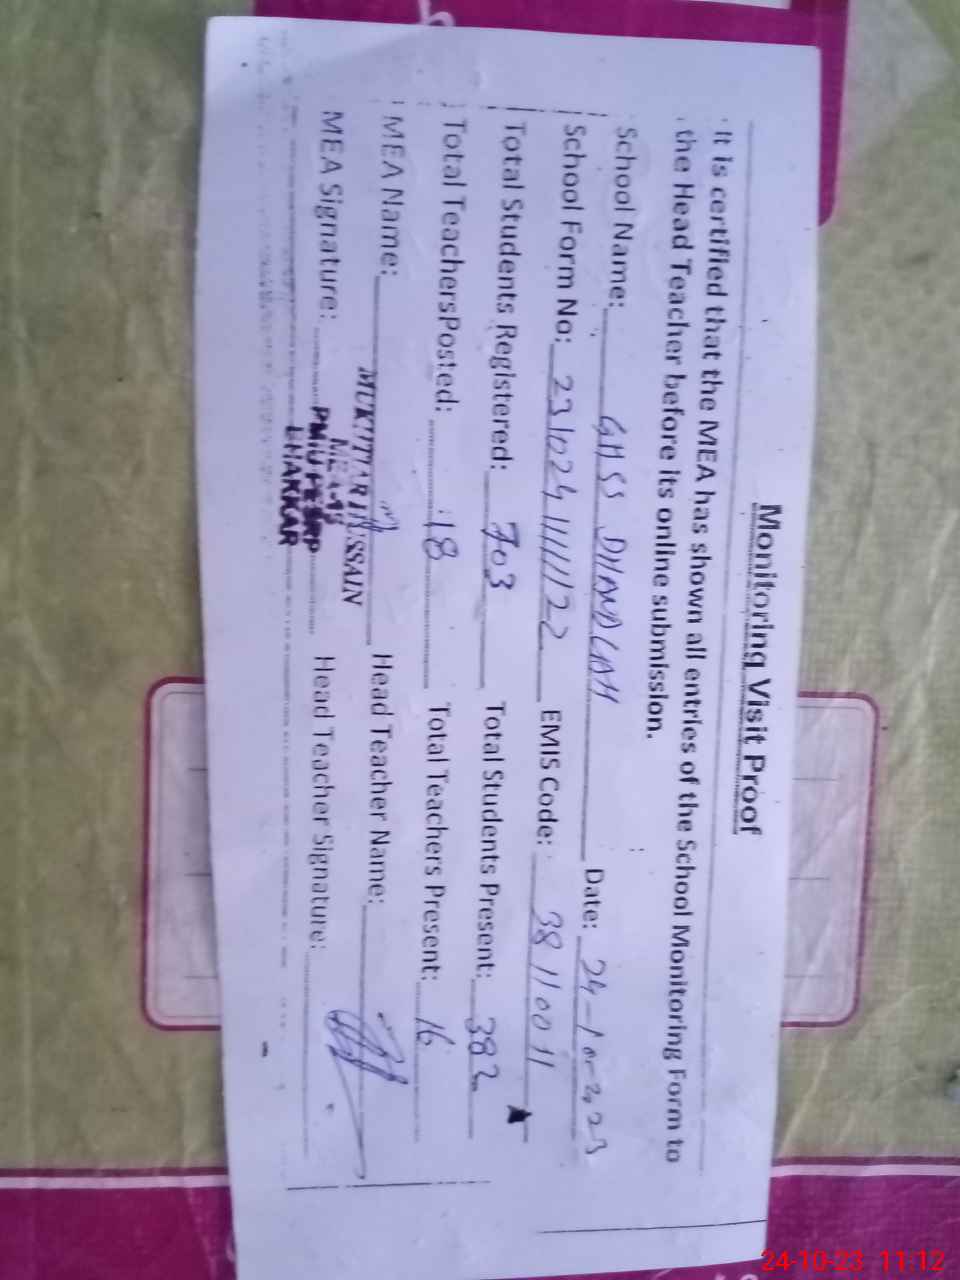 Monitoring Visit Proof
It is certified that the MEA has shown all entries of the School Monitoring Form to
the Head Teacher before its online submission.
School Name: GHSS DHANDLAH Date: 24-10-2023
School Form No: EMIS Code: 38110011
Total Students Registered: 703 Total Students Present: 382
Total TeachersPosted: 18 Total Teachers Present: 16
MEA Name: MUKHTIAR HUSSAIN Head Teacher Name:
MEA Signature: Head Teacher Signature:
BHAKKAR
24-10-23 11:12